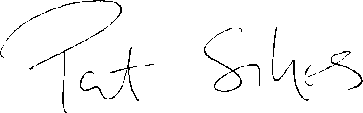 Pat Sikes